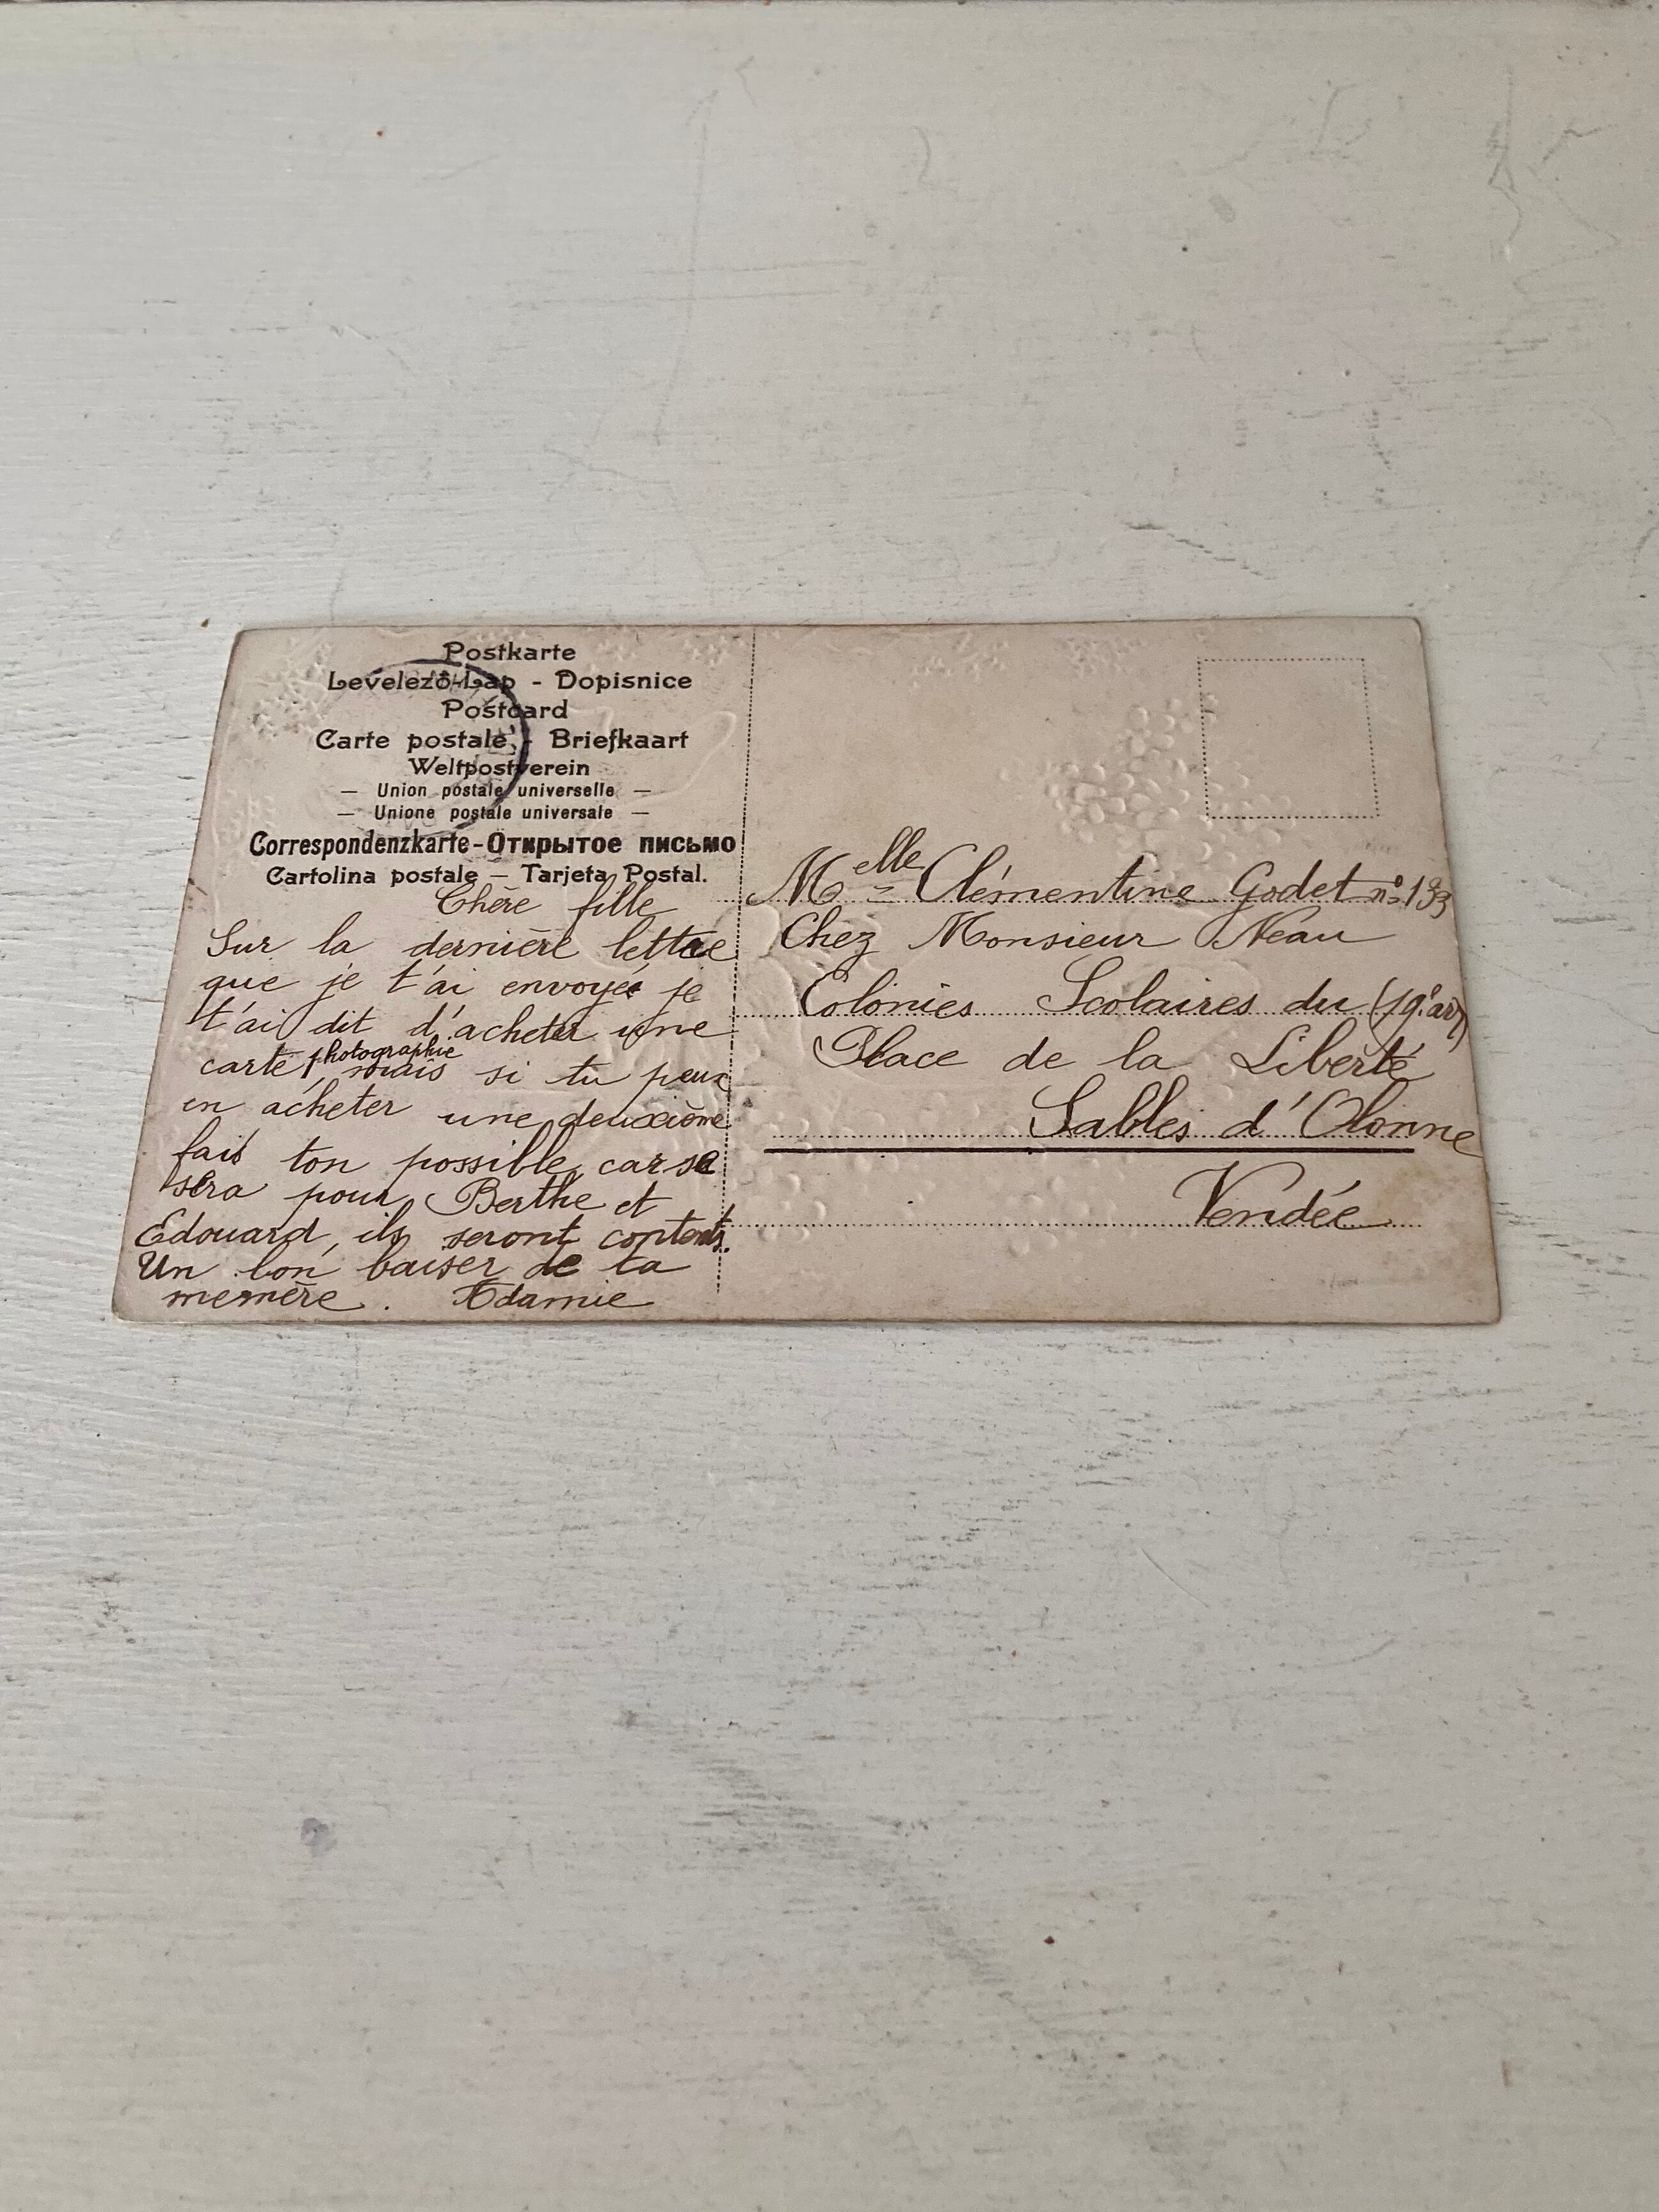 Postkarte
Levelező-Lap - Dopisnice
Postcard
Carte postale - Briefkaart
Weltpostverein
— Union postale universelle —
— Unione postale universale —
Correspondenzkarte-Открытое письмо
Cartolina postale — Tarjeta Postal.
Chère fille
Sur la dernière lettre
que je t'ai envoyée je
t'ai dit d'acheter une
photographie
carte mais si tu peux
en acheter une deuxième
fait ton possible, car se
sera pour Berthe et
Edouard, ils seront contents.
Un bon baiser de ta
memère. Edamie
Melle Clémentine Godet n°
Chez Monsieur Neau
Colonies Scolaires du (19e ar)
Place de la Liberté
Sables d'Olonne
Vendée